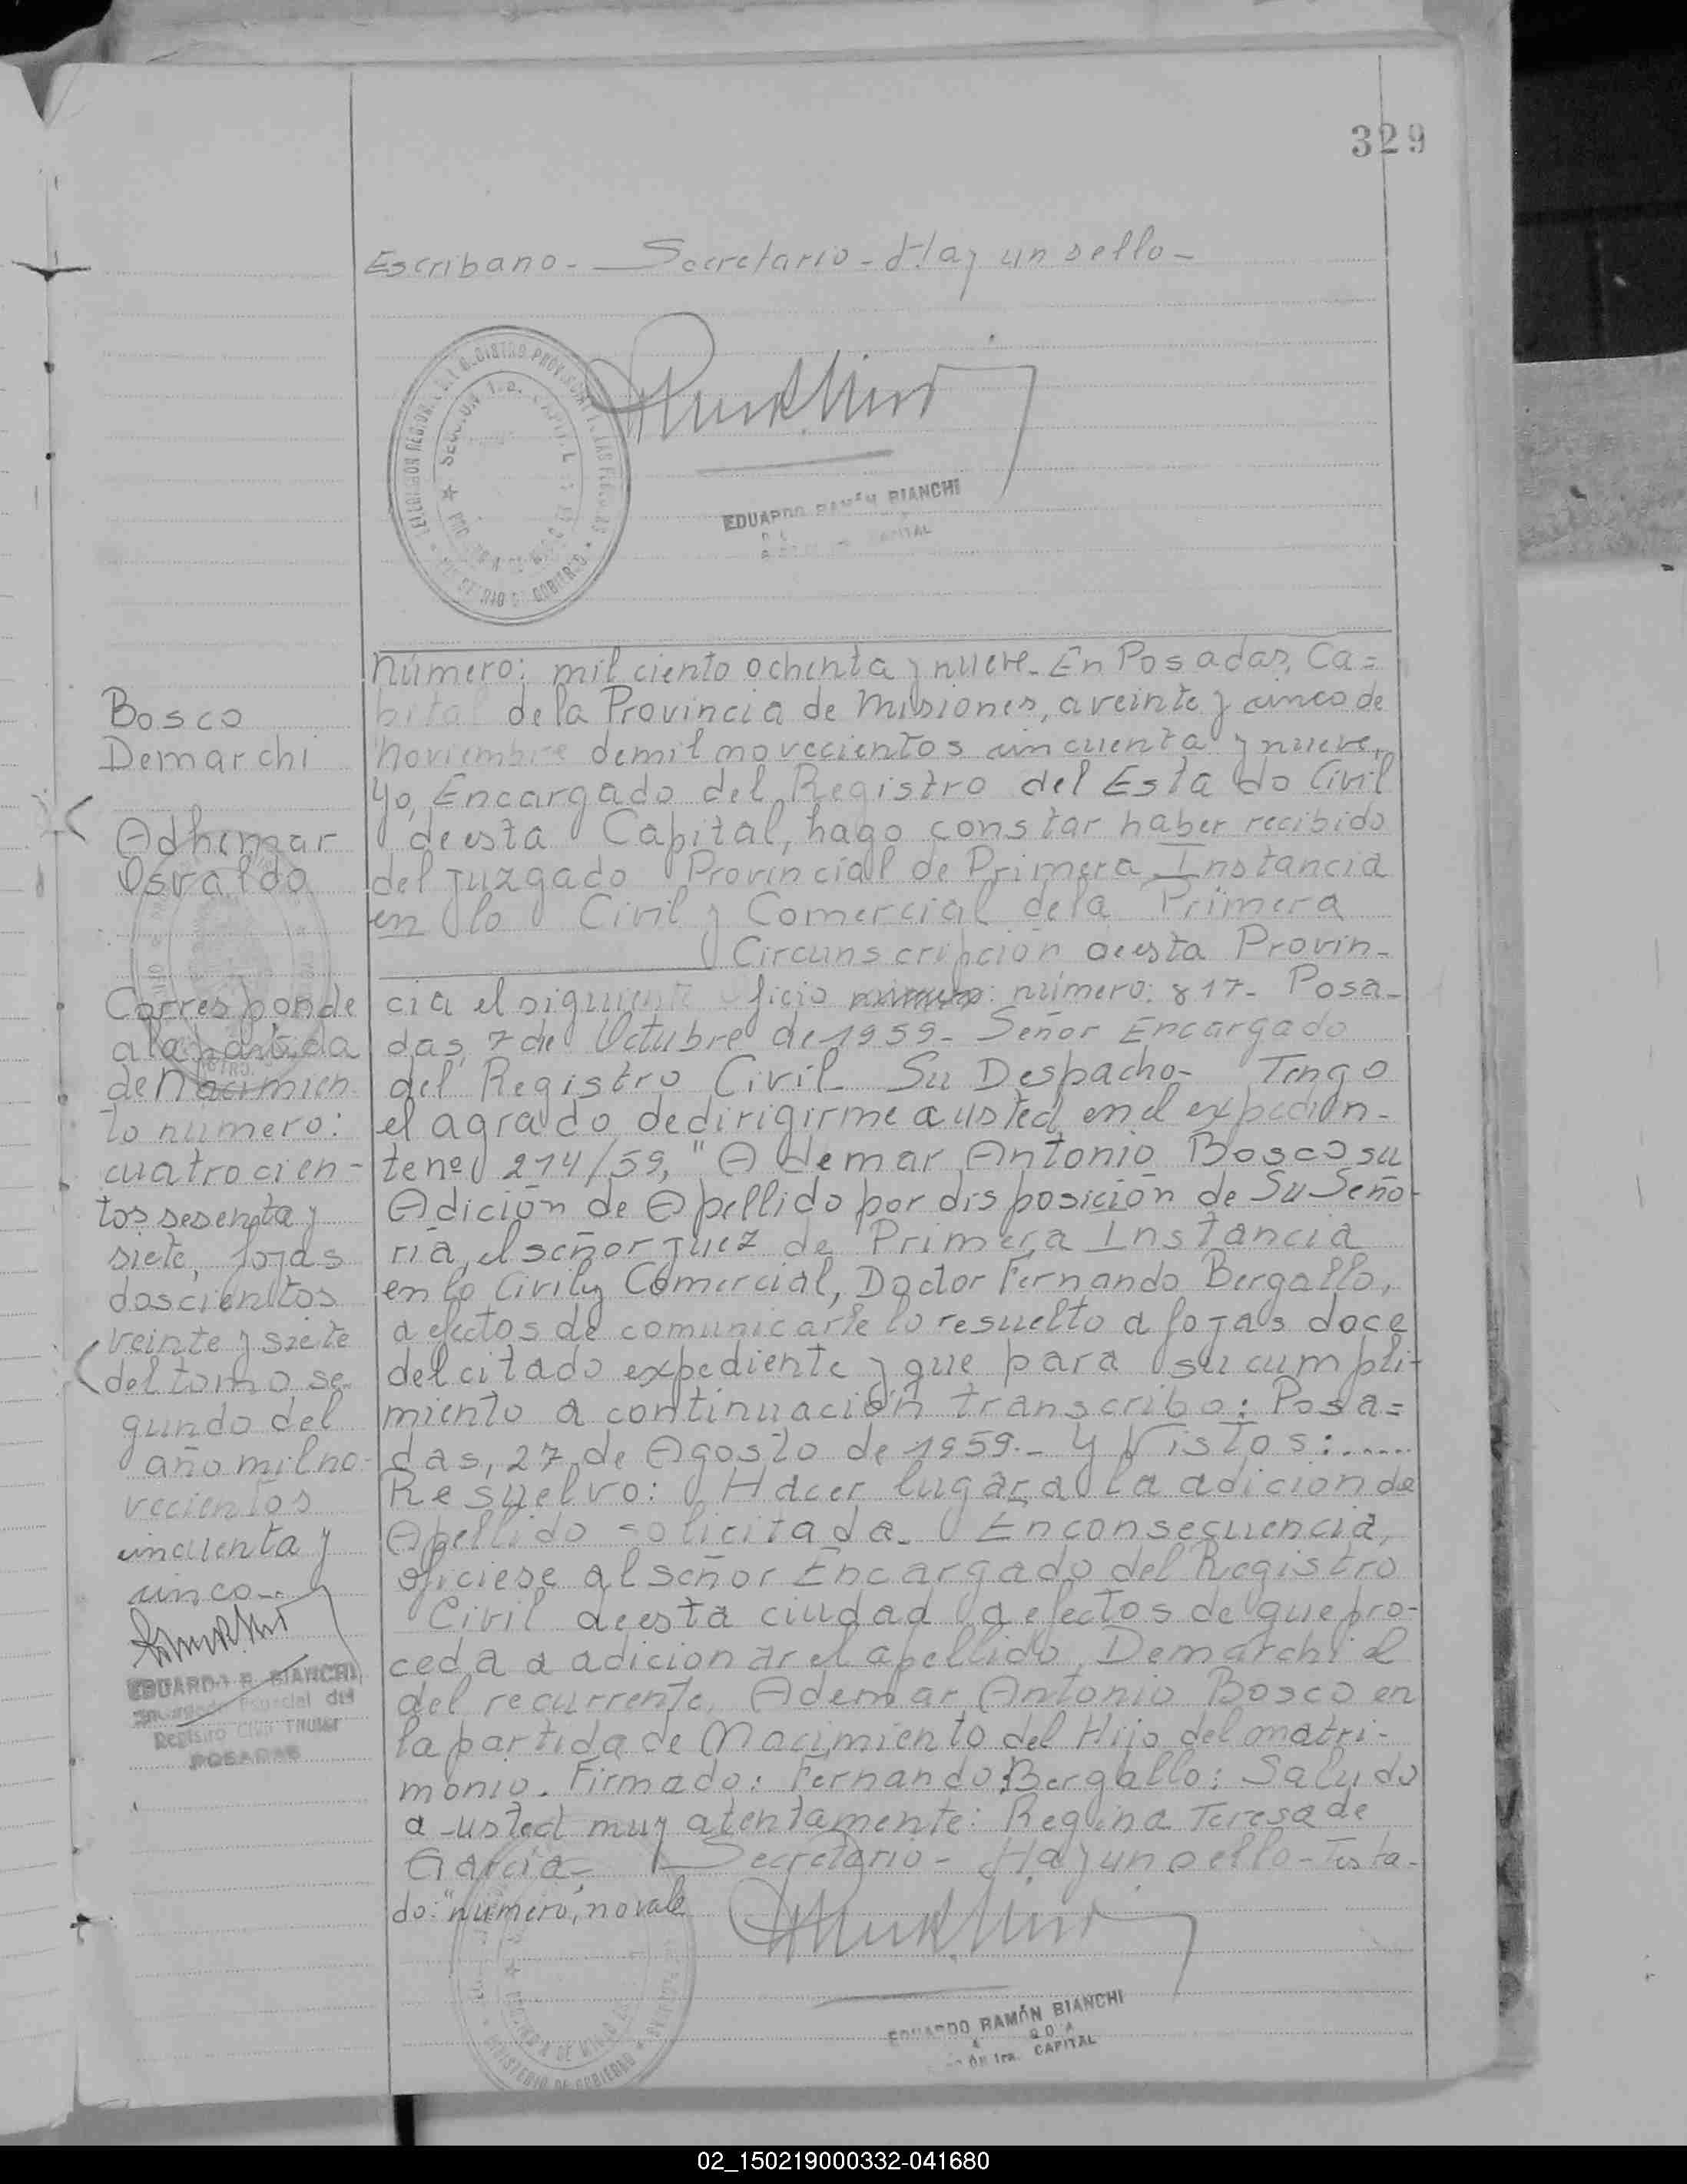 329
Escribano - Secretario - Hay un sello -
SECCION 1a. CAPITAL
MINISTERIO DE GOBIERNO
EDUARDO RAMÓN BIANCHI
CAPITAL
Número: mil ciento ochenta y nueve. En Posadas, Ca=
pital de la Provincia de Misiones, a veinte y cinco de
noviembre de mil novecientos cincuenta y nueve,
yo, Encargado del Registro del Estado Civil
de esta Capital, hago constar haber recibido
del juzgado Provincial de Primera Instancia
en lo Civil y Comercial de la Primera
Circunscripción de esta Provin-
cia el siguiente oficio numero: número: 817- Posa-
das, 7 de Octubre de 1959- Señor Encargado
del Registro Civil Su Despacho- Tengo
el agrado de dirigirme a usted en el expedien-
te nº 214/59, "Ademar Antonio Bosco su
Adición de Apellido por disposición de Su Seño-
ria, el señor juez de Primera Instancia
en lo Civil y Comercial, Doctor Fernando Bergallo,
a efectos de comunicarle lo resuelto a fojas doce
del citado expediente y que para su cumpli-
miento a continuación transcribo: Posa=
das, 27 de Agosto de 1959.- Y Vistos:......
Resuelvo: Hacer lugar a la adición de
Apellido solicitada. En consecuencia,
oficiese al señor Encargado del Registro
Civil de esta ciudad a efectos de que pro-
ceda a adicionar el apellido Demarchi al
del recurrente, Ademar Antonio Bosco en
la partida de Nacimiento del Hijo del matri-
monio. Firmado: Fernando Bergallo: Saludo
a usted muy atentamente: Regina Teresa de
Garcia - Secretario - Hay un sello - Testa-
do: "número", no vale
MINISTERIO DE GOBIERNO
EDUARDO RAMÓN BIANCHI
1ra. CAPITAL
Bosco
Demarchi
Adhemar
Osvaldo
Corresponde
a la partida
de Nacimien-
to número:
cuatrocien-
tos sesenta y
siete, fojas
doscientos
veinte y siete
del tomo se-
gundo del
año mil no-
vecientos
cincuenta y
cinco-.
EDUARDO R. BIANCHI
Encargado Especial del
Registro Civil Titular
POSADAS
02_150219000332-041680